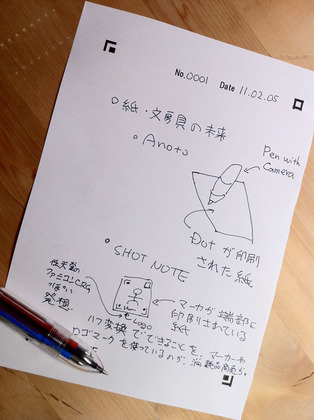 No.0001 Date 11.02.05
紙・文房具の未来
Anoto
Pen with
Camera
Dotが印刷
された紙
SHOT NOTE
任天堂の
ファミコン
発想
マーカが端部に
印刷されている
紙
Logo
ハフ変換でできることを マーカーや
ロゴマークを使っているのが